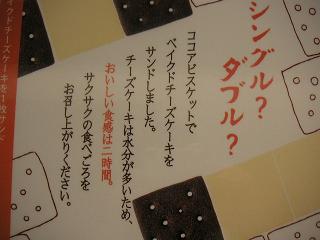 シングル？
ダブル？
ココアビスケットで
ベイクドチーズケーキを
サンドしました。
チーズケーキは水分が多いため、
おいしい食感は二時間。
サクサクの食べごろを
お召し上がりください。
イクドチーズケーキを1枚サンド